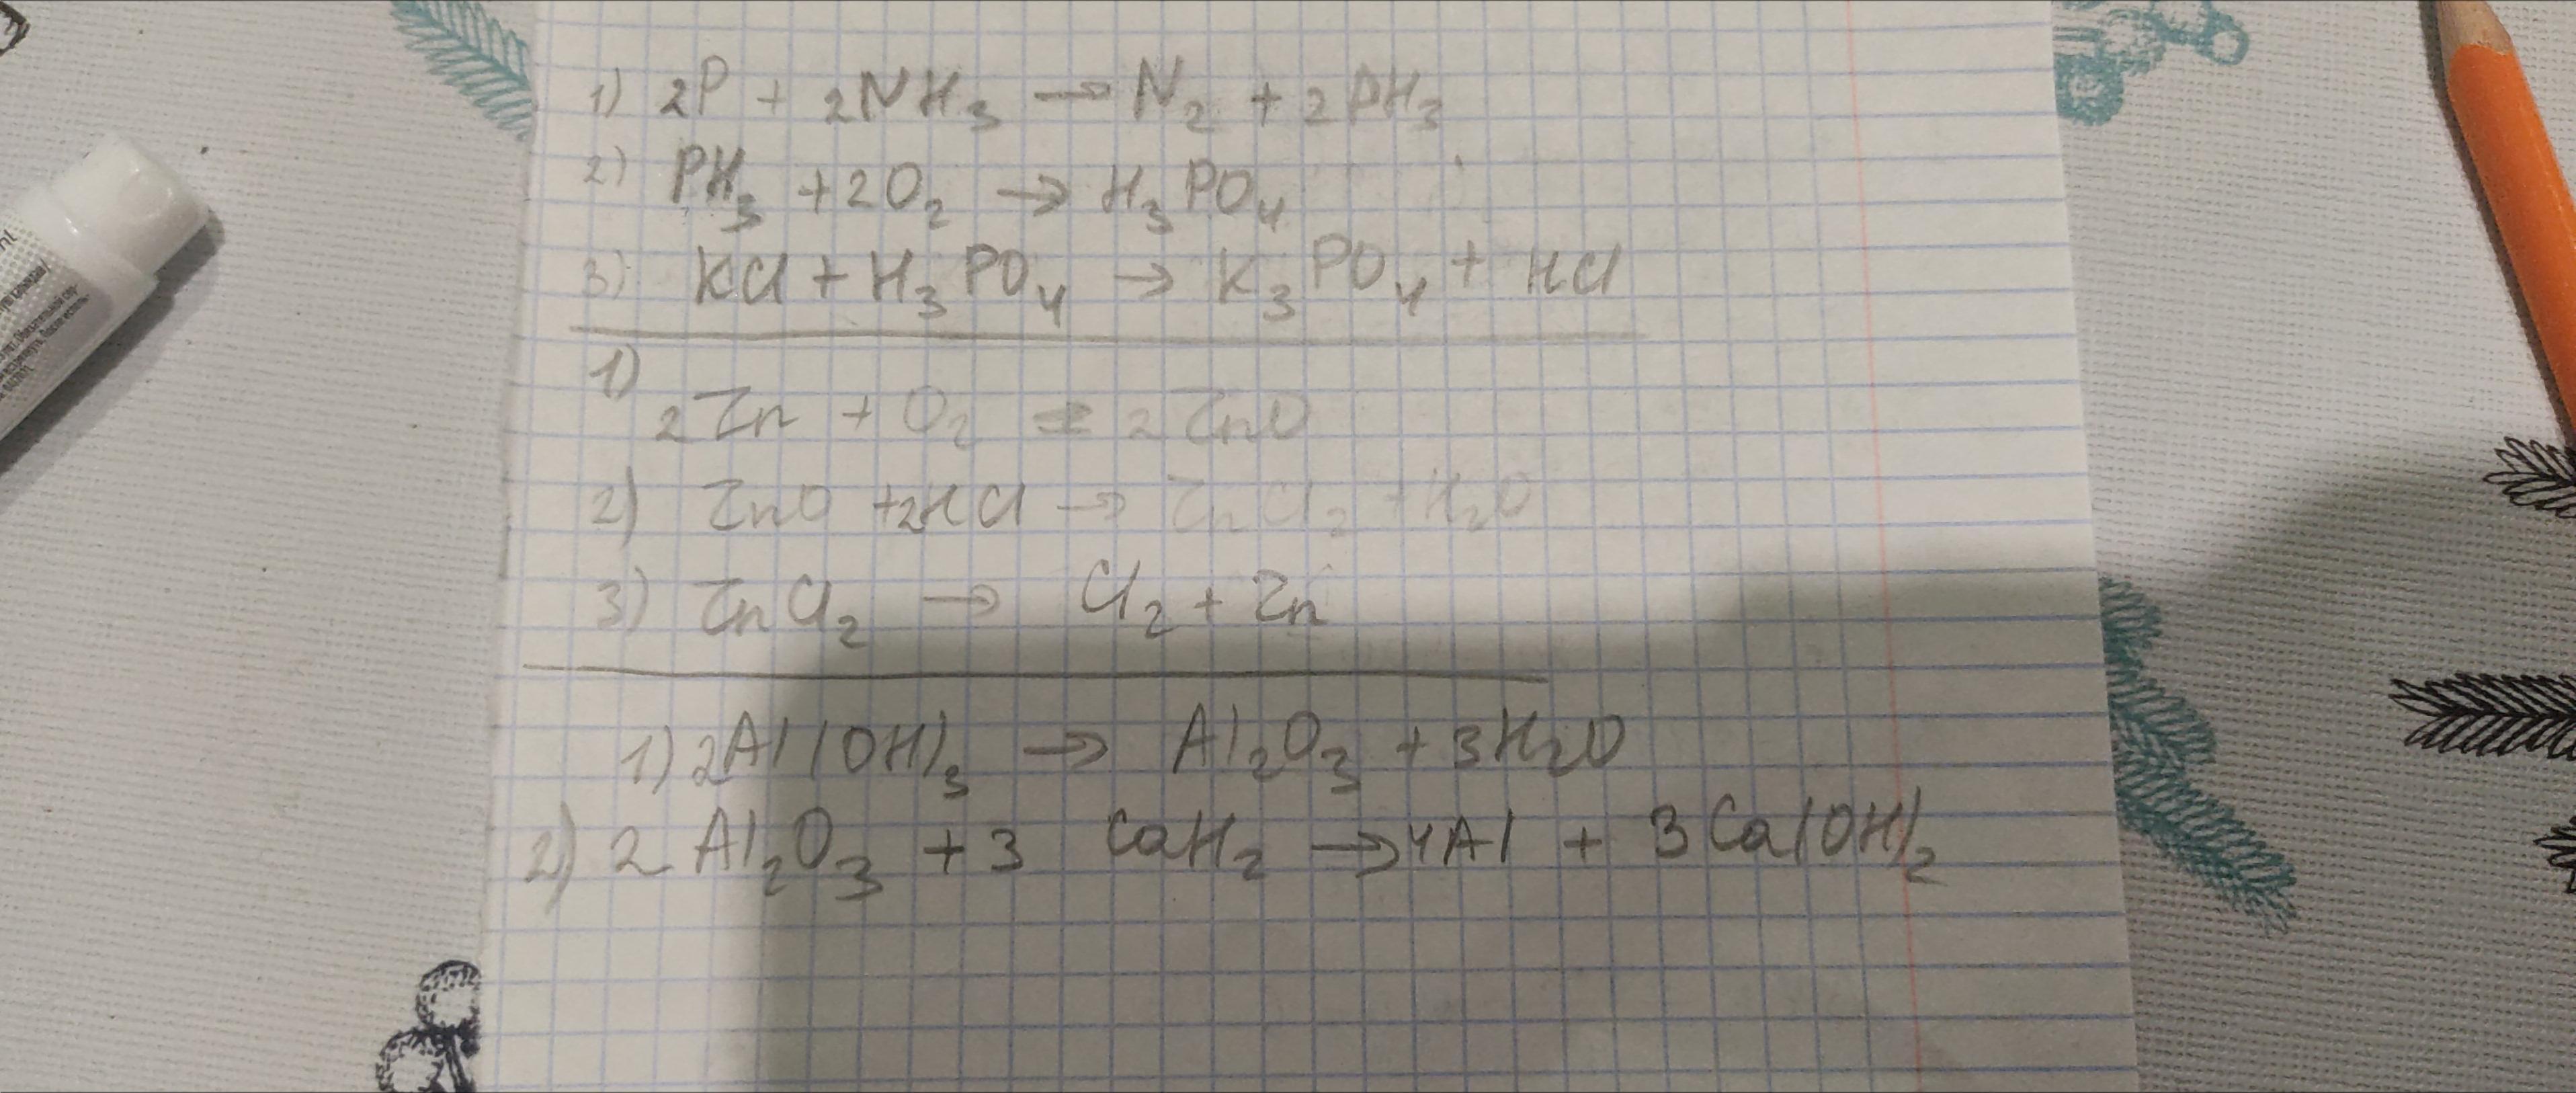 1) 2P + 2NH₃ → N₂ + 2PH₃
2) PH₃ + 2O₂ → H₃PO₄
3) KCl + H₃PO₄ → K₃PO₄ + HCl
1)
2Zn + O₂ = 2ZnO
2) ZnO + 2HCl → ZnCl₂ + H₂O
3) ZnCl₂ → Cl₂ + Zn
1) 2Al(OH)₃ → Al₂O₃ + 3H₂O
2) 2Al₂O₃ + 3 CaH₂ → 4Al + 3Ca(OH)₂